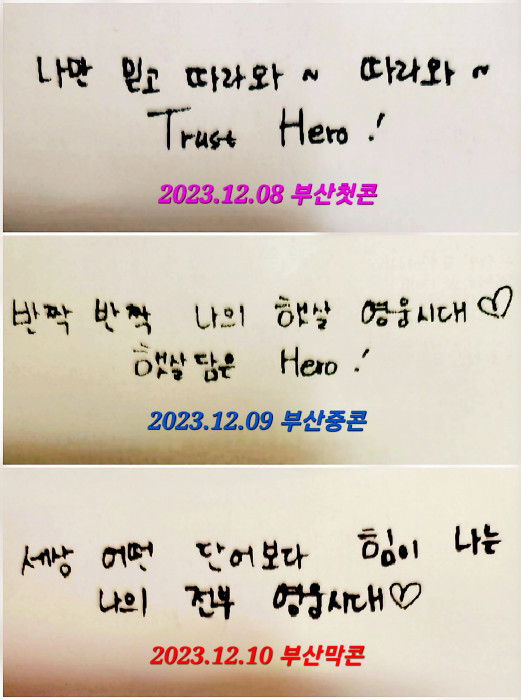 나만 믿고 따라와~ 따라와~
Trust Hero!
2023.12.08 부산첫콘
반짝 반짝 나의 햇살 영웅시대♡
햇살 담은 Hero!
2023.12.09 부산중콘
세상 어떤 단어보다 힘이 나는
나의 전부 영웅시대♡
2023.12.10 부산막콘